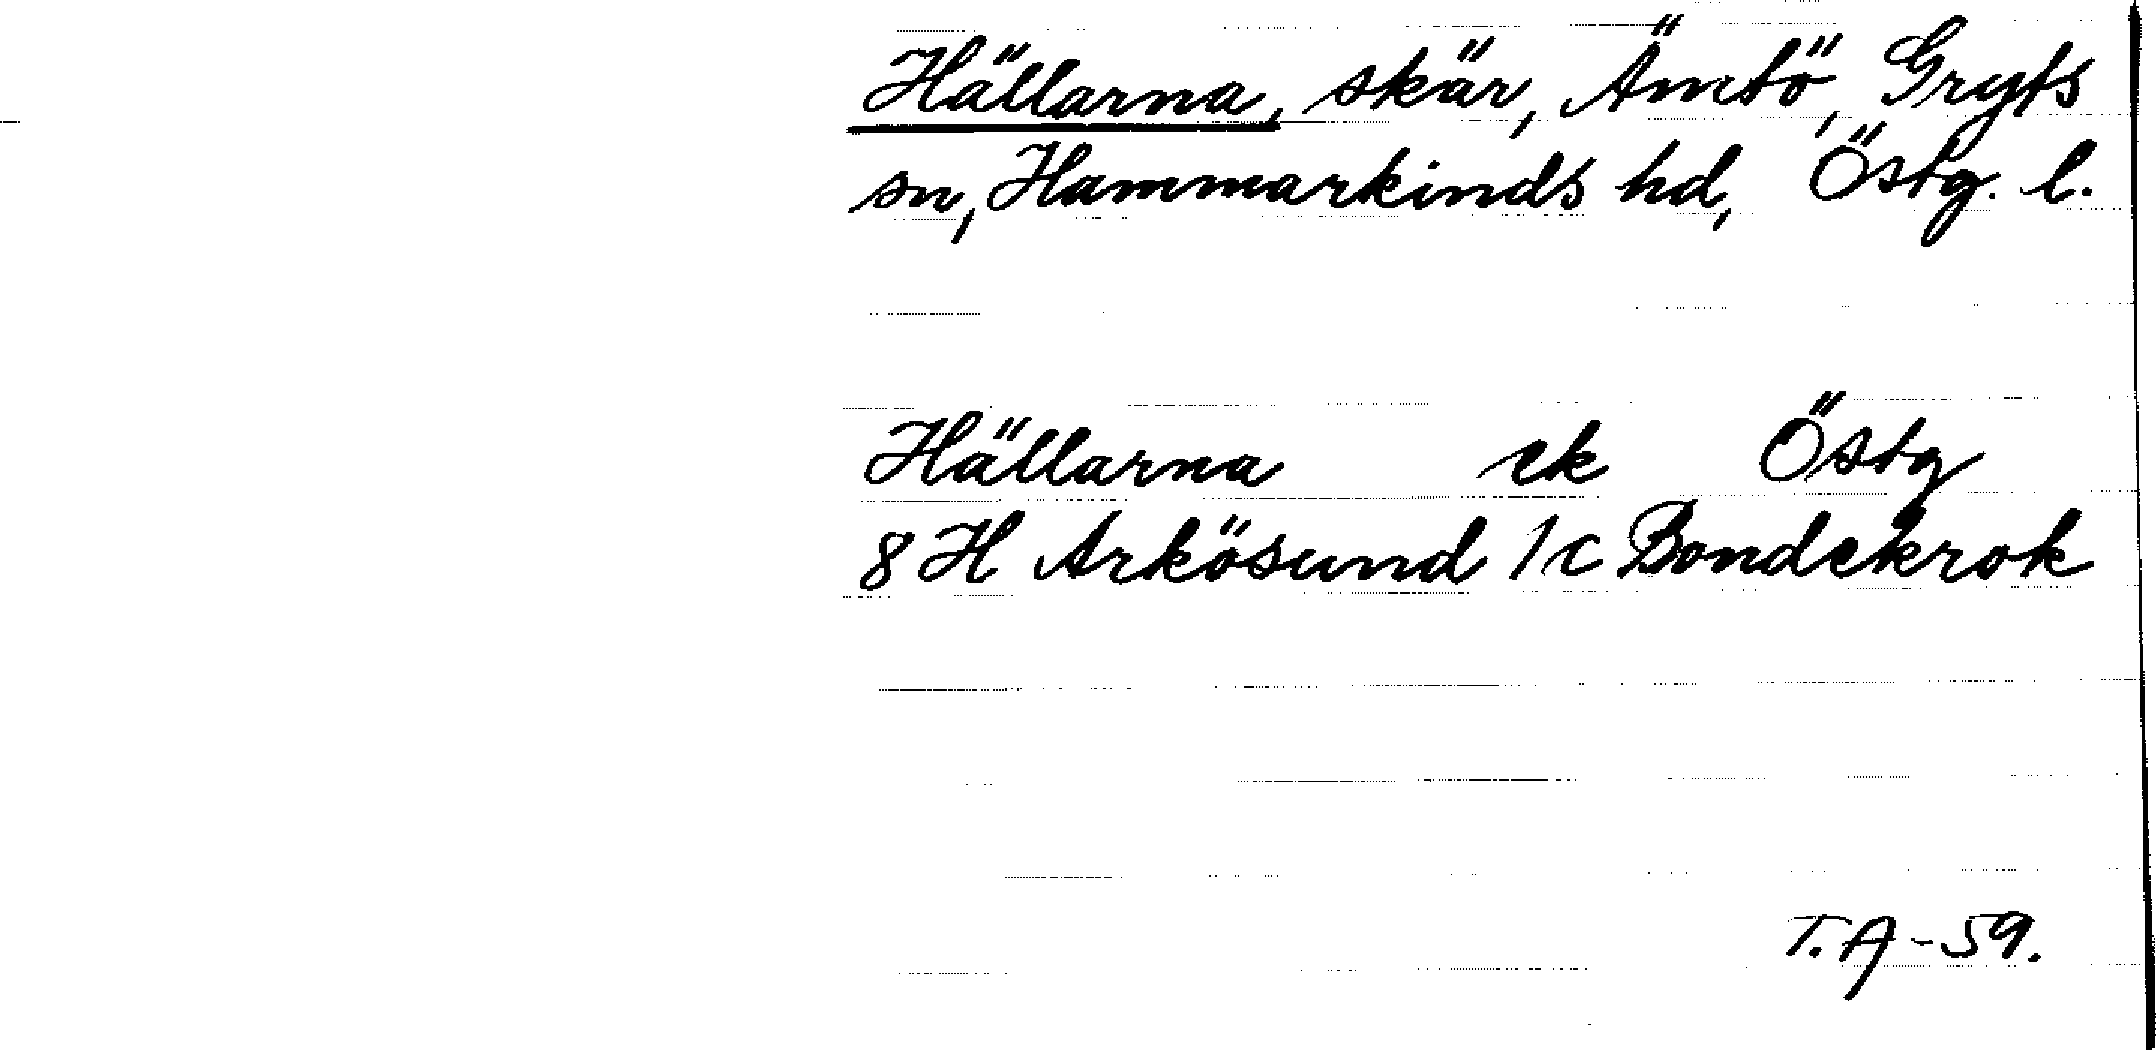 Hällarna, skär, Ämtö, Gryts
sn, Hammarkinds hd, Östg. l.
Hällarna ek Östg
8 H Arkösund 1c Bondekrok
T. A - 59.